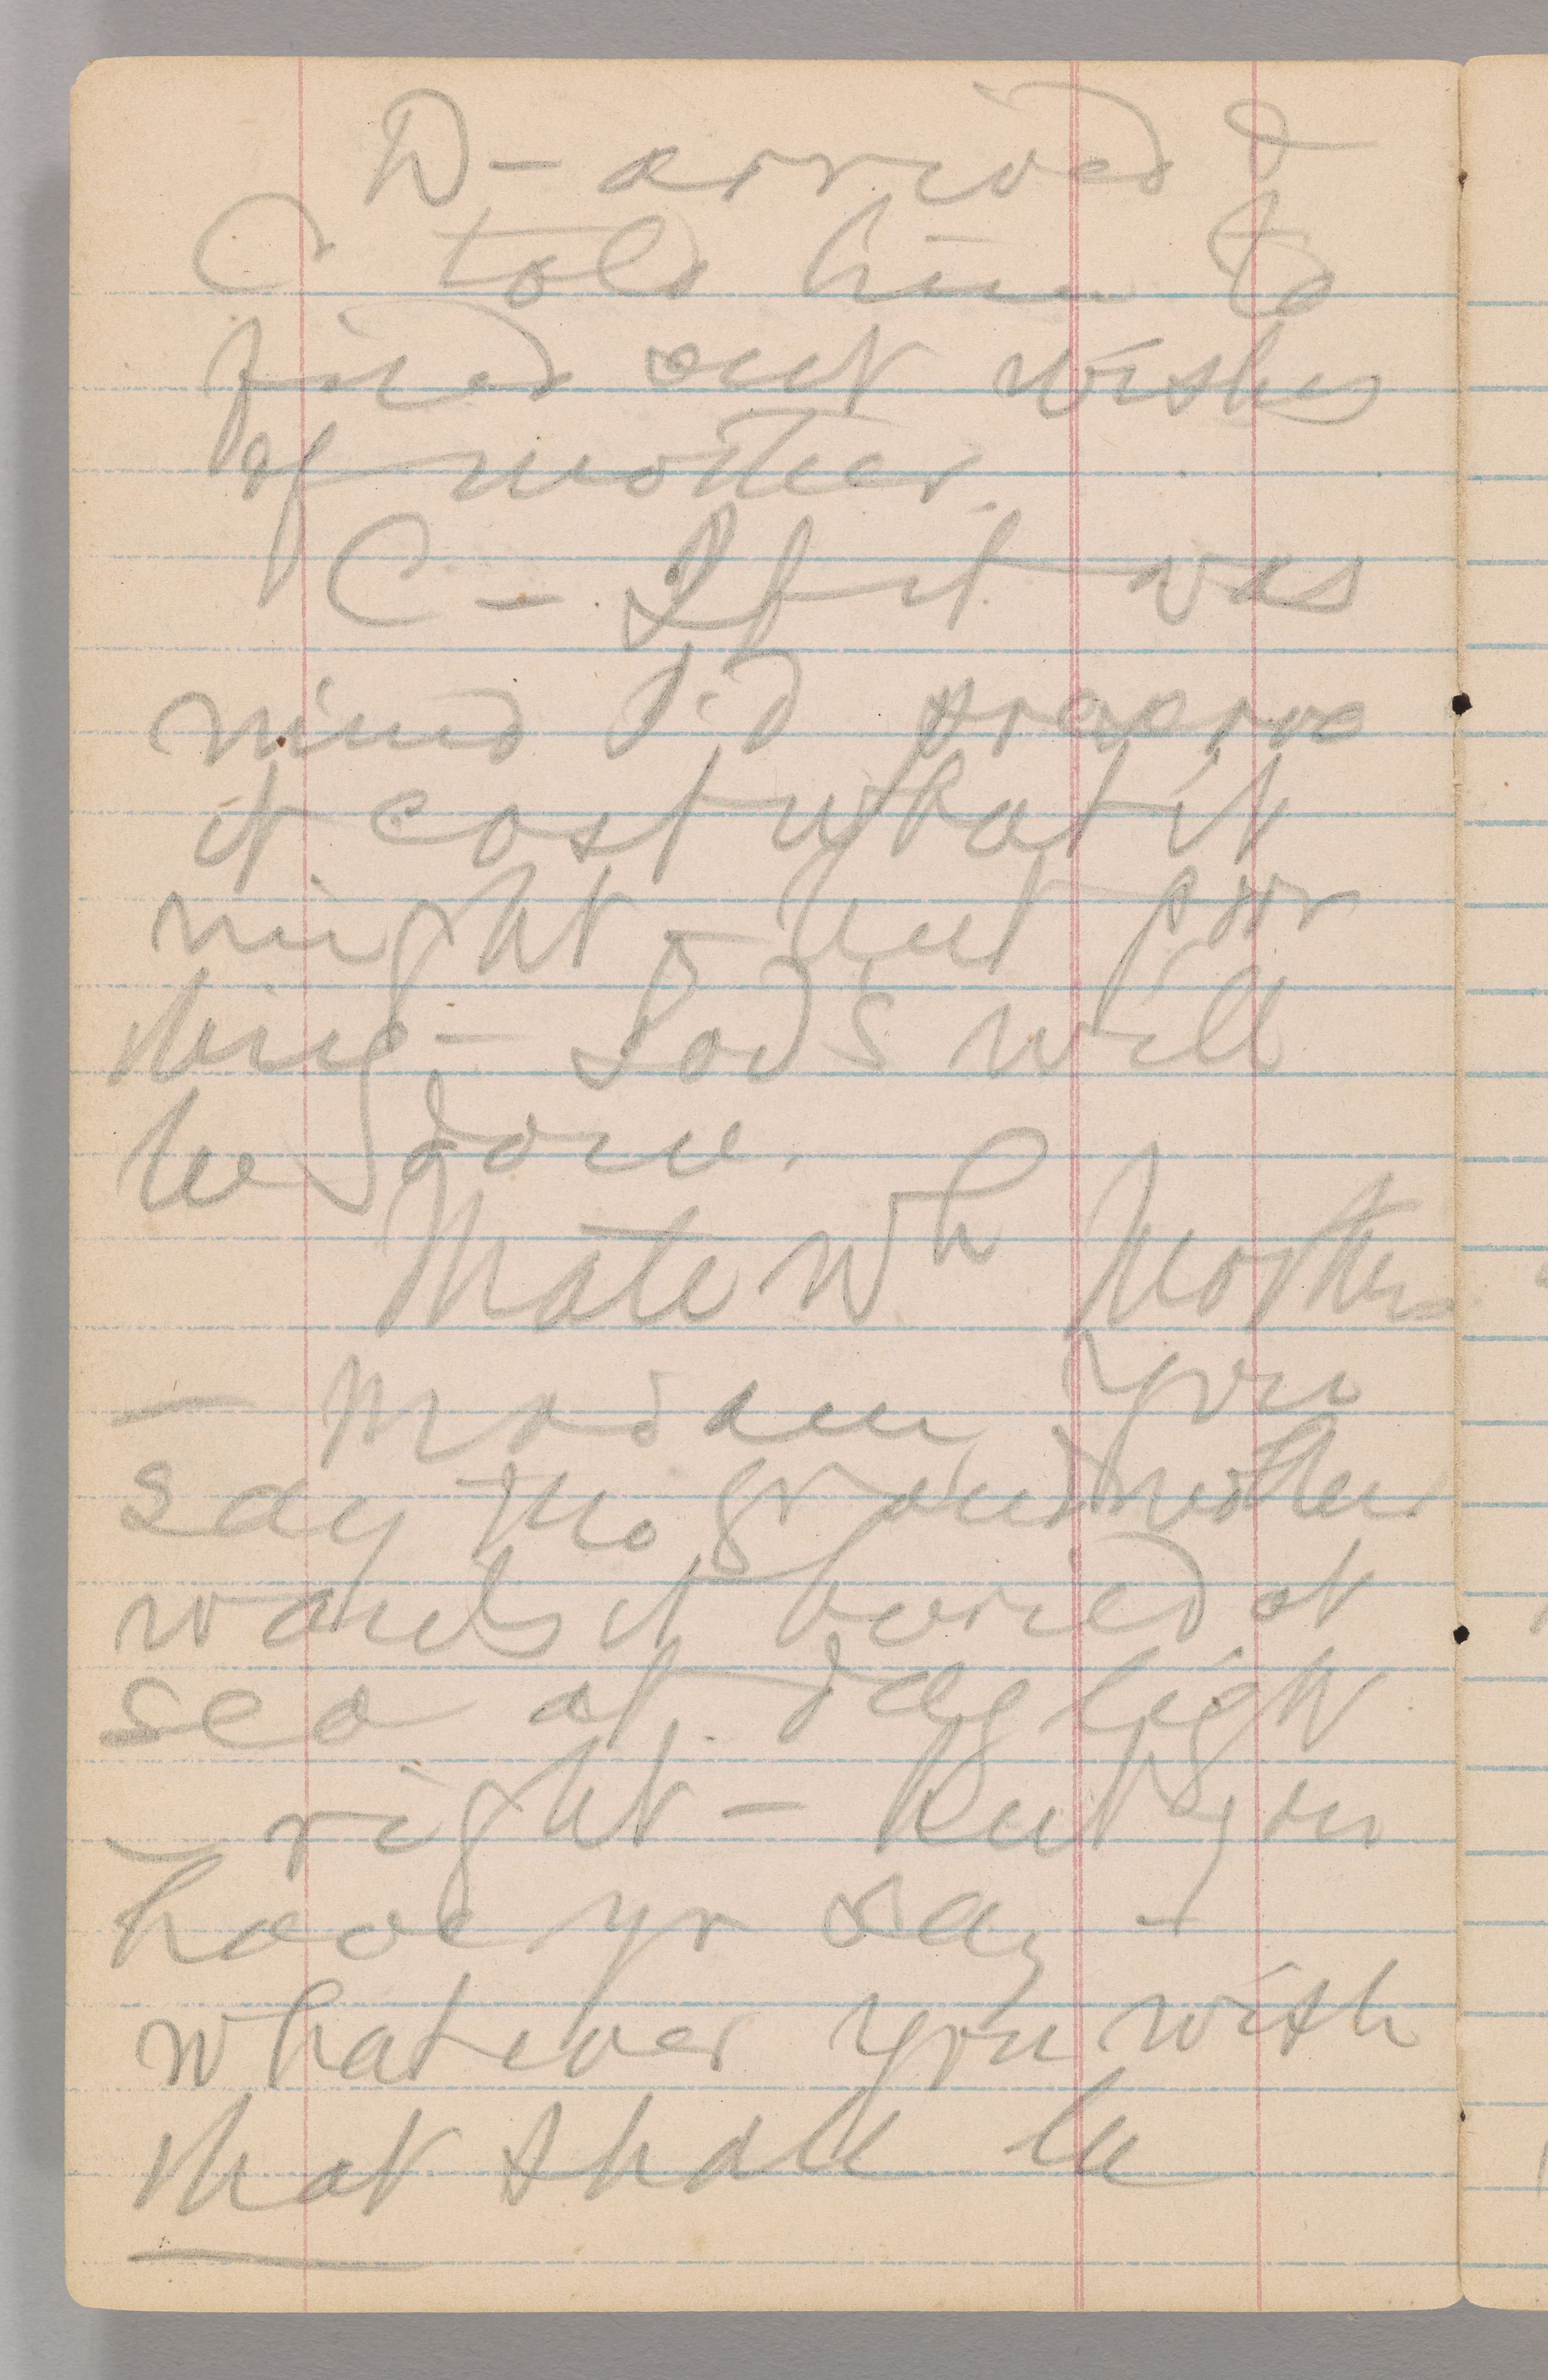 D — arrived &
C told him to
find out wishes
of mother.
C — If it was
mine I'd preserve
it cost what it
might — but poor
thing — God's will
be done.
Mate wh Mother
— Madam, you
say the grandmother
wants it buried at
sea at daylight
— right — But you
have yr say —
whatever you wish
that shall be